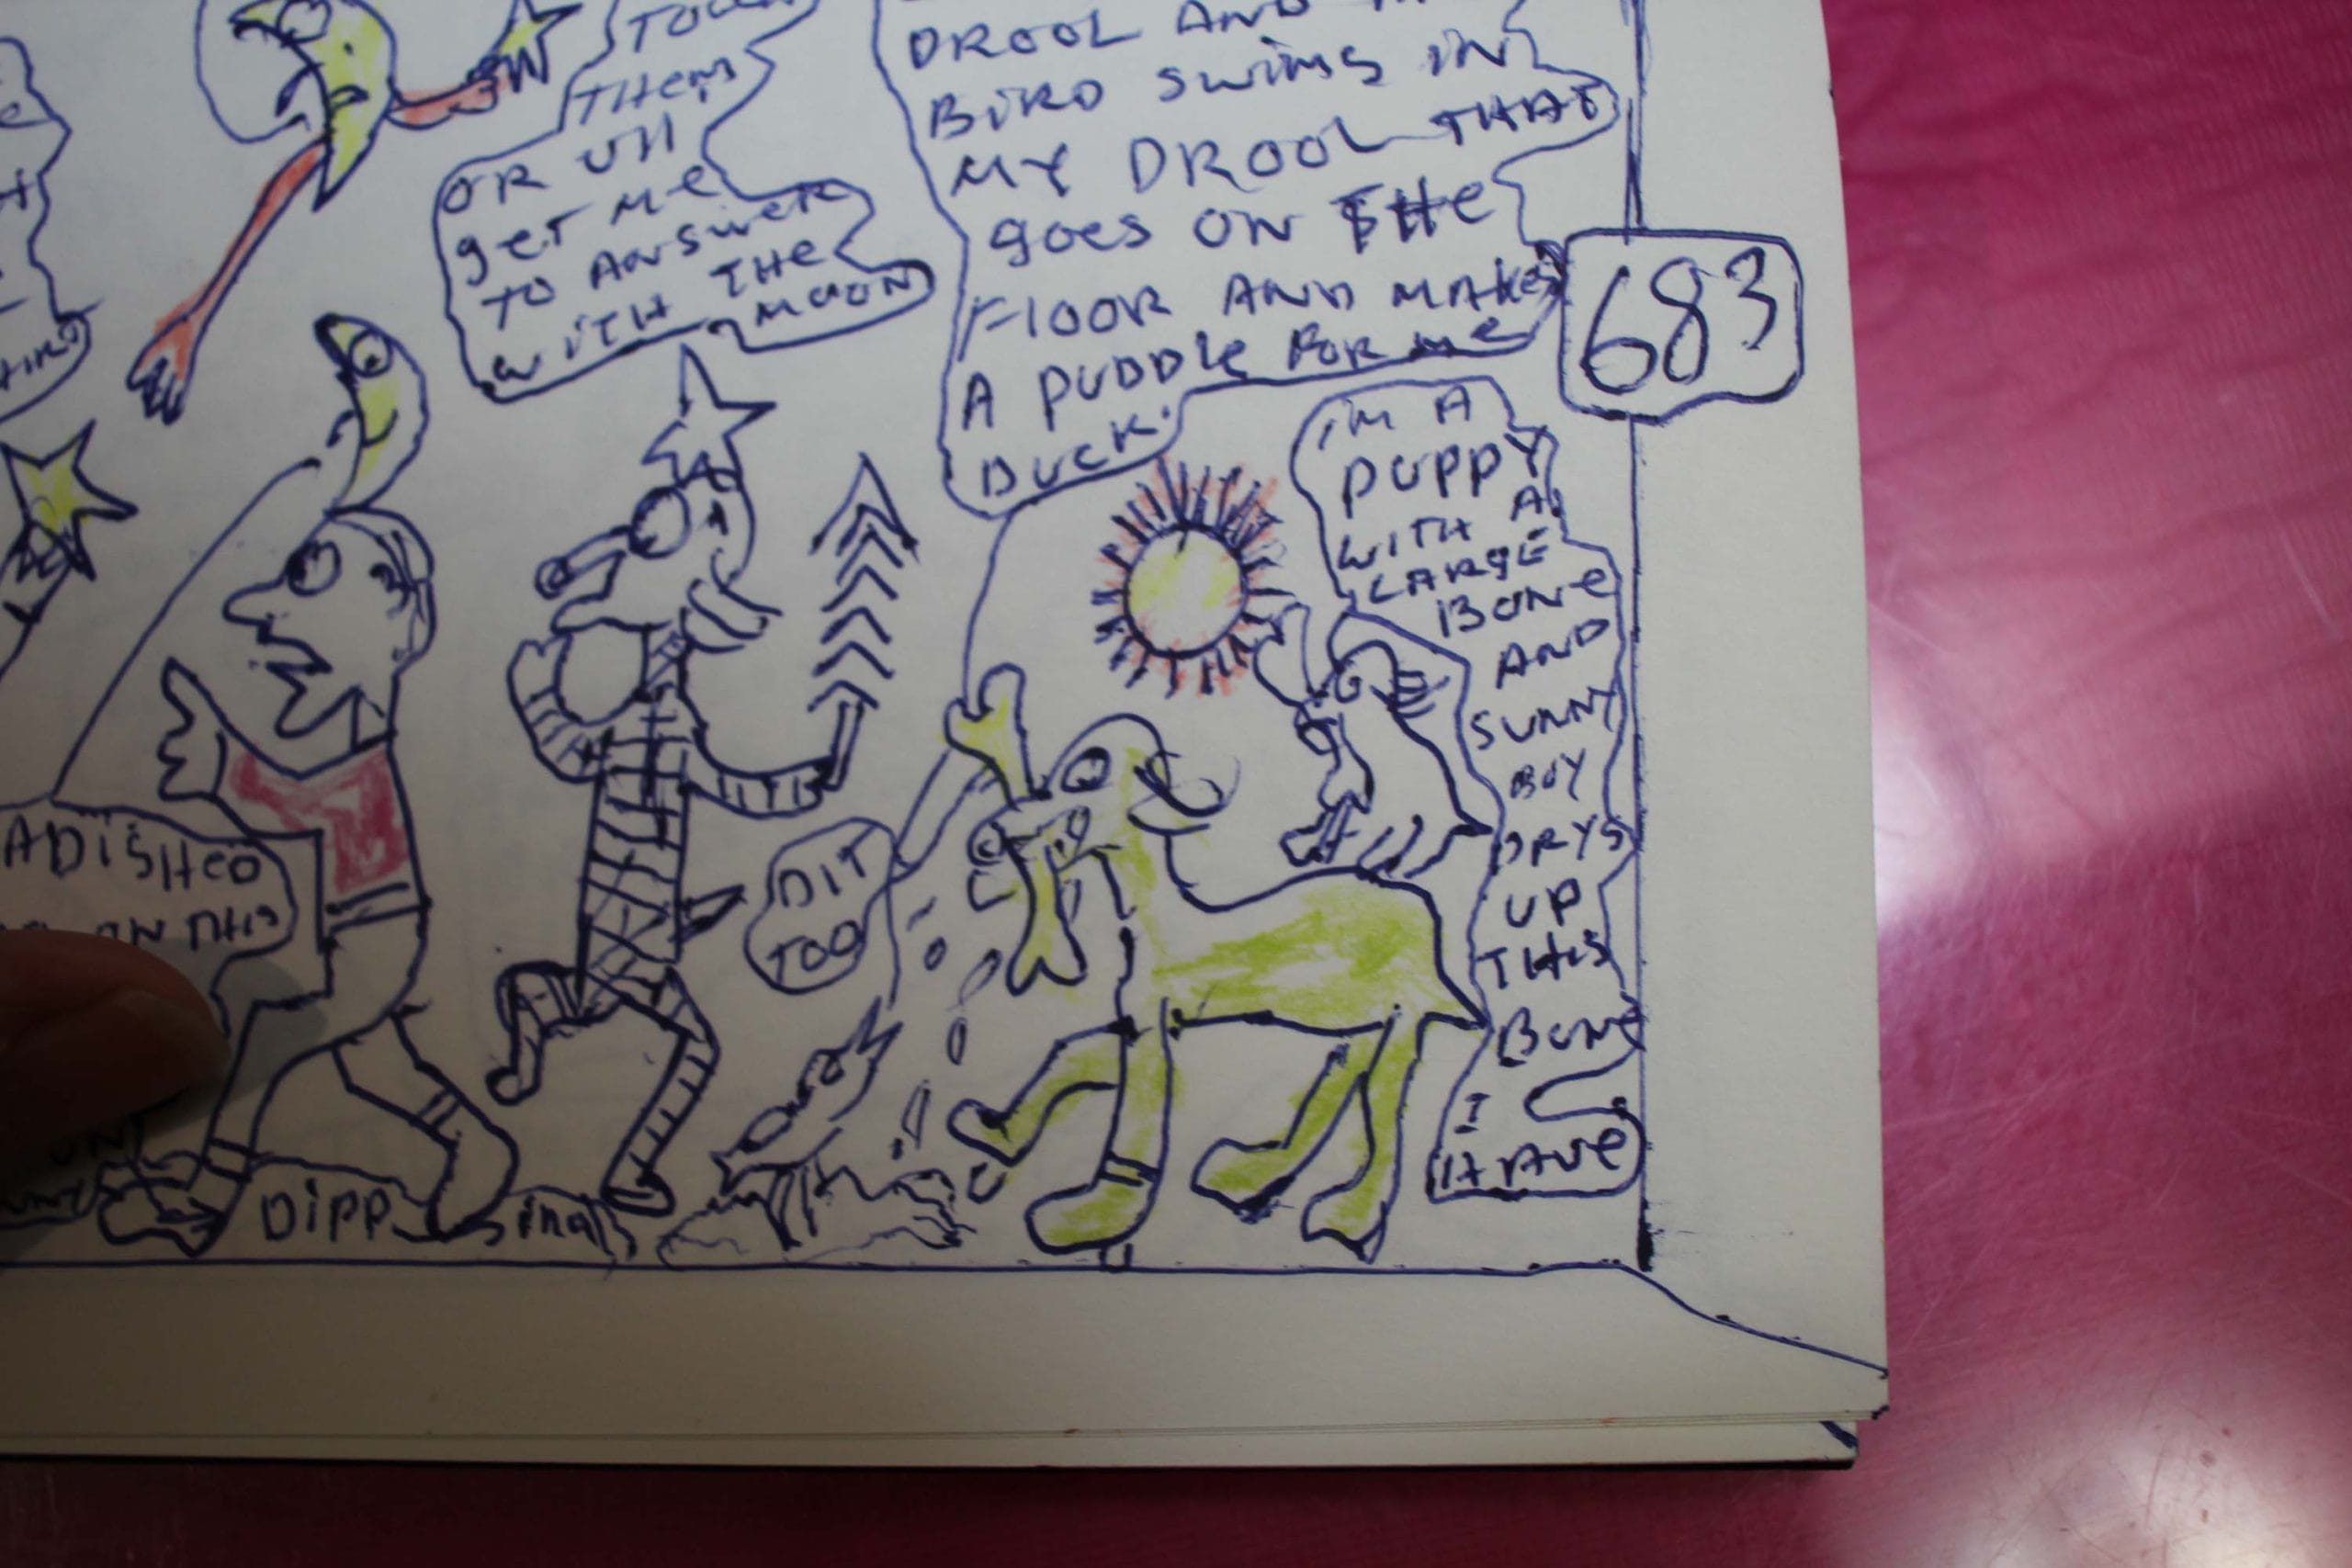 THEM
OR UH
GET ME
TO ANSWER
WITH THE
MOON
DROOL AND
BIRD SWIMS IN
MY DROOL THAT
GOES ON THE
FLOOR AND MAKES
A PUDDLE FOR ME
DUCK.
683
I'M A
PUPPY
WITH A
LARGE
BONE
AND
SUNNY
BOY
DRYS
UP
THIS
BONE
I
HAVE
DIT
TOO
ADISHED
DIPP ING